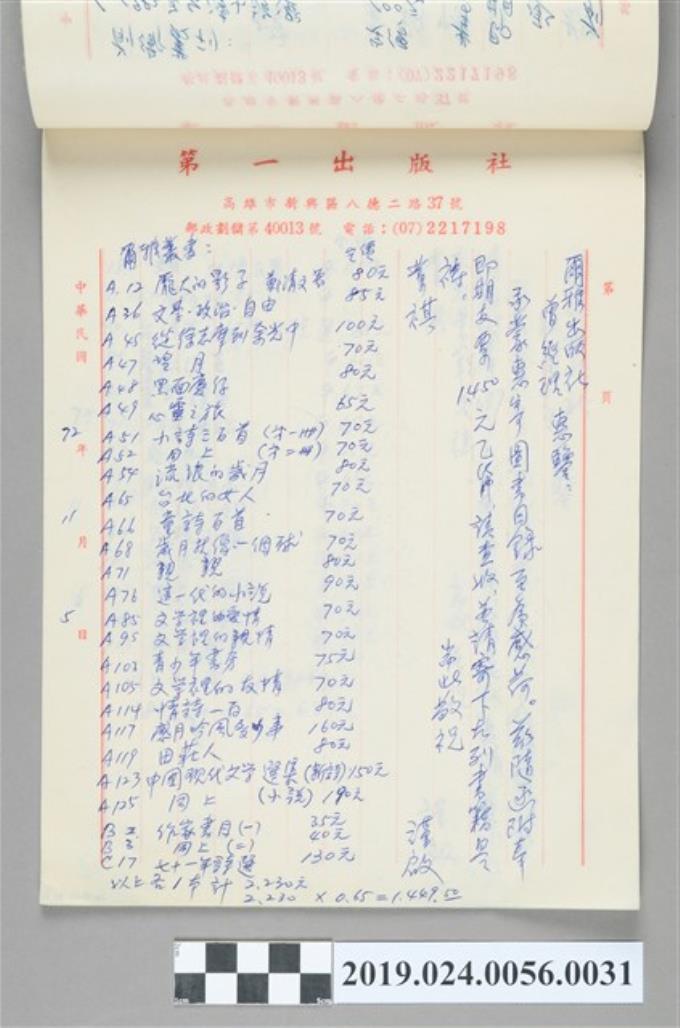 第一出版社
高雄市新興區八德二路37號
郵政劃儲第40013號 電話:(07)2217198
第 頁
爾雅出版社
曾經理 惠鑒:
承蒙惠寄圖書目錄至為感荷。茲隨函附奉
即期支票1450元乙帋請查收,並請寄下左列書籍是
禱。
耑此敬祝
籌祺
謹啟
爾雅叢書: 定價
A.12 龐大的影子 80元
A36 文學·政治·自由 85元
A45 從徐志摩到余光中 100元
A47 月 70元
A48 黑面慶仔 80元
A49 心靈之旅 65元
A51 小詩三百首 (第一冊) 70元
A52 同上 (第二冊) 70元
A54 流浪的歲月 80元
A65 台北的女人 70元
A66 童詩百首 70元
A68 歲月就像一個球 70元
A71 親親 80元
A76 這一代的小說 90元
A85 文學裡的愛情 70元
A95 文學裡的親情 70元
A103 青少年書房 75元
A105 文學裡的友情 70元
A114 情詩一百 80元
A117 應月吟風多少事 160元
A119 田莊人 80元
A123 中國現代文學選集(新詩) 150元
A125 同上 (小說) 190元
B 2 作家書目(一) 35元
B 3 同上 (二) 40元
C17 七十一年詩選 130元
以上各1本計 2,230元
2,230 × 0.65 = 1,449.50
中華民國72年11月5日
2019.024.0056.0031